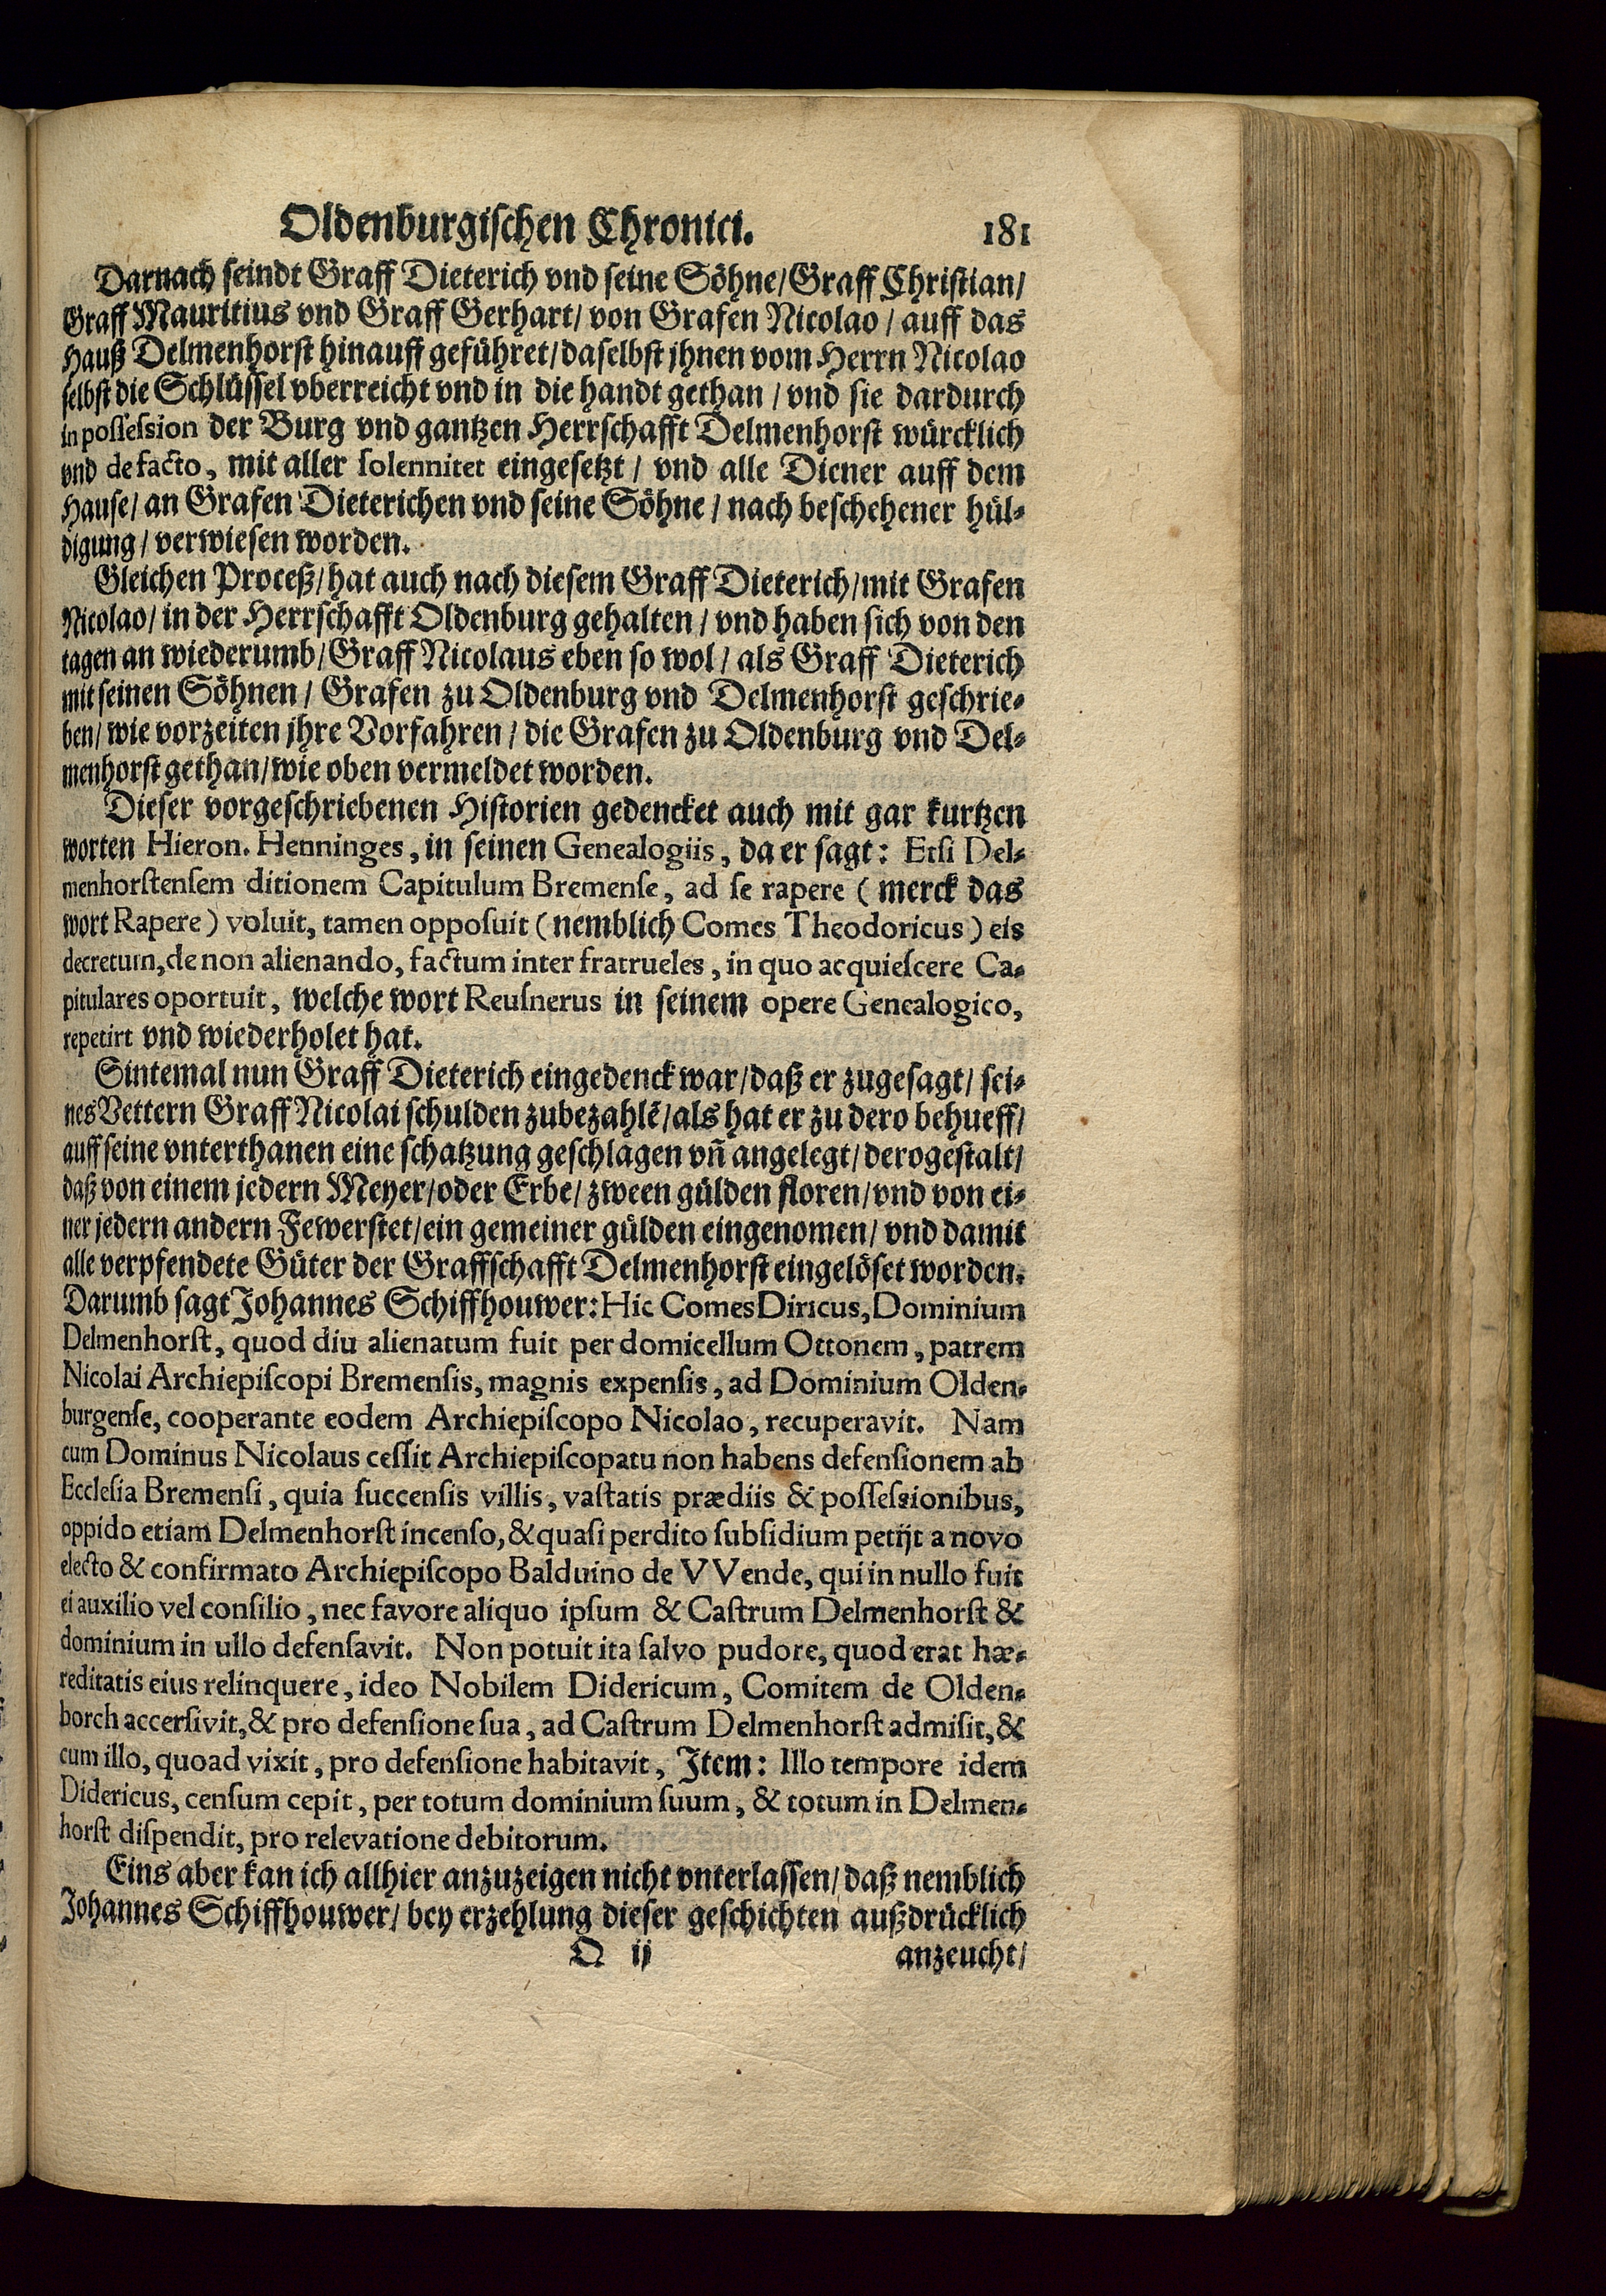 Oldenburgischen Chronici. 181
Darnach seindt Graff Dieterich vnd seine Söhne/ Graff Christian/
Graff Mauritius vnd Graff Gerhart/ von Grafen Nicolao/ auff das
Hauß Delmenhorst hinauff geführet/ daselbst jhnen vom Herrn Nicolao
selbst die Schlüssel vberreicht vnd in die handt gethan/ vnd sie dardurch
in possession der Burg vnd gantzen Herrschafft Delmenhorst würcklich
vnd de facto, mit aller solennitet eingesetzt/ vnd alle Diener auff dem
Hause/ an Grafen Dieterichen vnd seine Söhne/ nach beschehener hül-
digung/ verwiesen worden.
Gleichen Proceß/ hat auch nach diesem Graff Dieterich/ mit Grafen
Nicolao/ in der Herrschafft Oldenburg gehalten/ vnd haben sich von den
tagen an wiederumb/ Graff Nicolaus eben so wol/ als Graff Dieterich
mit seinen Söhnen/ Grafen zu Oldenburg vnd Delmenhorst geschrie-
ben/ wie vorzeiten jhre Vorfahren/ die Grafen zu Oldenburg vnd Del-
menhorst gethan/ wie oben vermeldet worden.
Dieser vorgeschriebenen Historien gedencket auch mit gar kurtzen
worten Hieron. Henninges, in seinen Genealogiis, da er sagt: Etsi Del-
menhorstensem ditionem Capitulum Bremense, ad se rapere (merck das
wort Rapere) voluit, tamen opposuit (nemblich Comes Theodoricus) eis
decretum, de non alienando, factum inter fratrueles, in quo acquiescere Ca-
pitulares oportuit, welche wort Reusnerus in seinem opere Genealogico,
repetirt vnd wiederholet hat.
Sintemal nun Graff Dieterich eingedenck war/ daß er zugesagt/ sei-
nes Vettern Graff Nicolai schulden zubezahlē/ als hat er zu dero behueff/
auff seine vnterthanen eine schatzung geschlagen vn̄ angelegt/ derogestalt/
daß von einem jedern Meyer/ oder Erbe/ zween gülden floren/ vnd von ei-
ner jedern andern Fewerstet/ ein gemeiner gülden eingenomen/ vnd damit
alle verpfendete Güter der Graffschafft Delmenhorst eingelöset worden.
Darumb sagt Johannes Schiffhouwer: Hic Comes Diricus, Dominium
Delmenhorst, quod diu alienatum fuit per domicellum Ottonem, patrem
Nicolai Archiepiscopi Bremensis, magnis expensis, ad Dominium Olden-
burgense, cooperante eodem Archiepiscopo Nicolao, recuperavit. Nam
cum Dominus Nicolaus cessit Archiepiscopatu non habens defensionem ab
Ecclesia Bremensi, quia succensis villis, vastatis prædiis & possessionibus,
oppido etiam Delmenhorst incenso, & quasi perdito subsidium petijt a novo
electo & confirmato Archiepiscopo Balduino de VVende, qui in nullo fuit
ei auxilio vel consilio, nec favore aliquo ipsum & Castrum Delmenhorst &
dominium in ullo defensavit. Non potuit ita salvo pudore, quod erat hæ-
reditatis eius relinquere, ideo Nobilem Didericum, Comitem de Olden-
borch accersivit, & pro defensione sua, ad Castrum Delmenhorst admisit, &
cum illo, quoad vixit, pro defensione habitavit, Item: Illo tempore idem
Didericus, censum cepit, per totum dominium suum, & totum in Delmen-
horst dispendit, pro relevatione debitorum.
Eins aber kan ich allhier anzuzeigen nicht vnterlassen/ daß nemblich
Johannes Schiffhouwer/ bey erzehlung dieser geschichten außdrücklich
Q ij anzeucht/